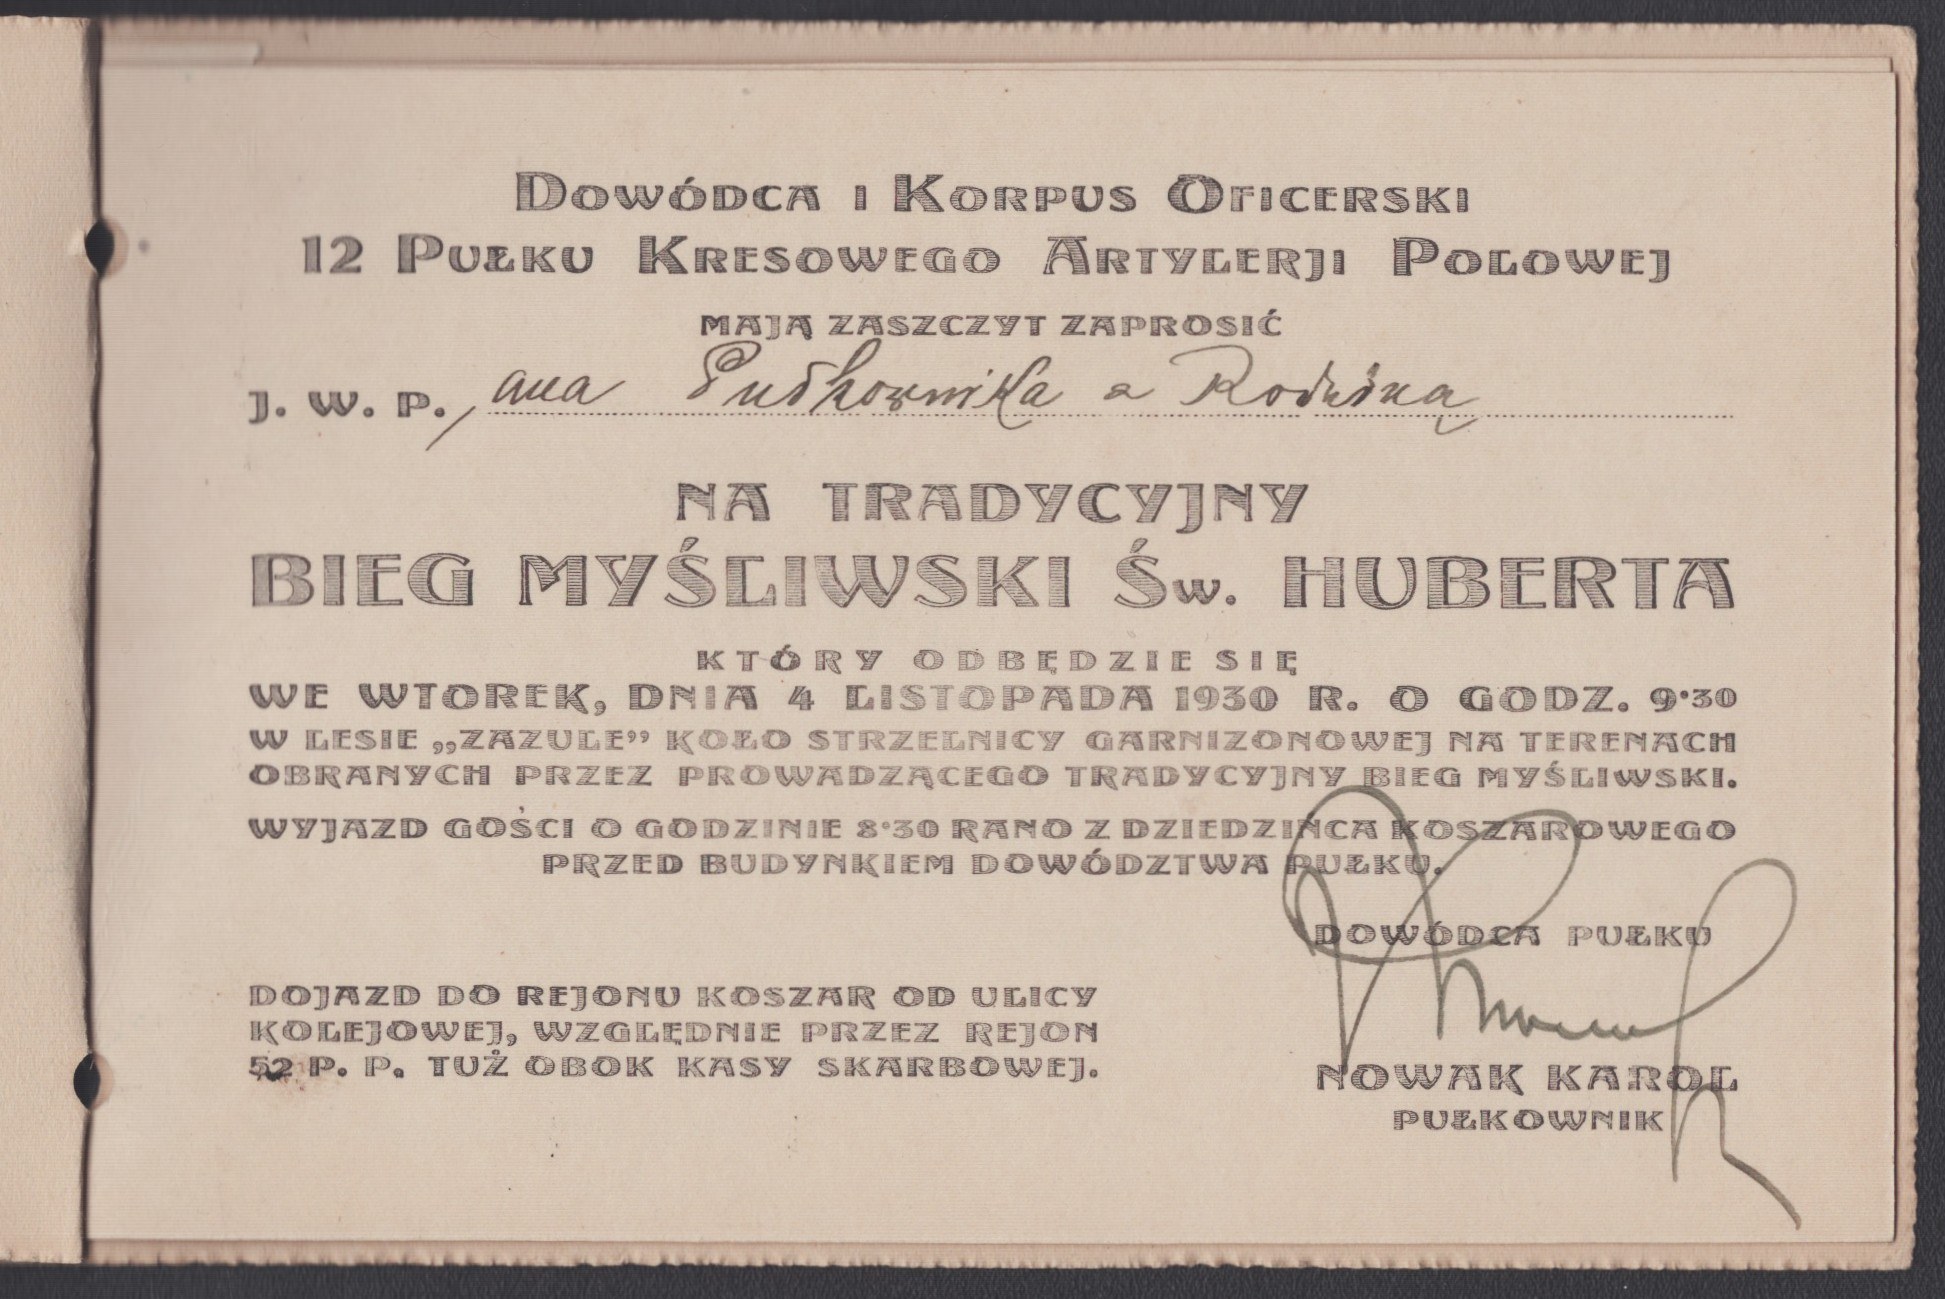 Dowódca i Korpus Oficerski
12 Pułku Kresowego Artylerji Polowej
MAJĄ ZASZCZYT ZAPROSIĆ
J. W. P. ana Pułkownika z Rodziną
NA TRADYCYJNY
BIEG MYŚLIWSKI Św. HUBERTA
KTÓRY ODBĘDZIE SIĘ
WE WTOREK, DNIA 4 LISTOPADA 1930 R. O GODZ. 9·30
W LESIE „ZAZULE” KOŁO STRZELNICY GARNIZONOWEJ NA TERENACH
OBRANYCH PRZEZ PROWADZĄCEGO TRADYCYJNY BIEG MYŚLIWSKI.
WYJAZD GOŚCI O GODZINIE 8·30 RANO Z DZIEDZIŃCA KOSZAROWEGO
PRZED BUDYNKIEM DOWÓDZTWA PUŁKU.
DOWÓDCA PUŁKU
NOWAK KAROL
PUŁKOWNIK
DOJAZD DO REJONU KOSZAR OD ULICY
KOLEJOWEJ, WZGLĘDNIE PRZEZ REJON
52 P. P. TUŻ OBOK KASY SKARBOWEJ.